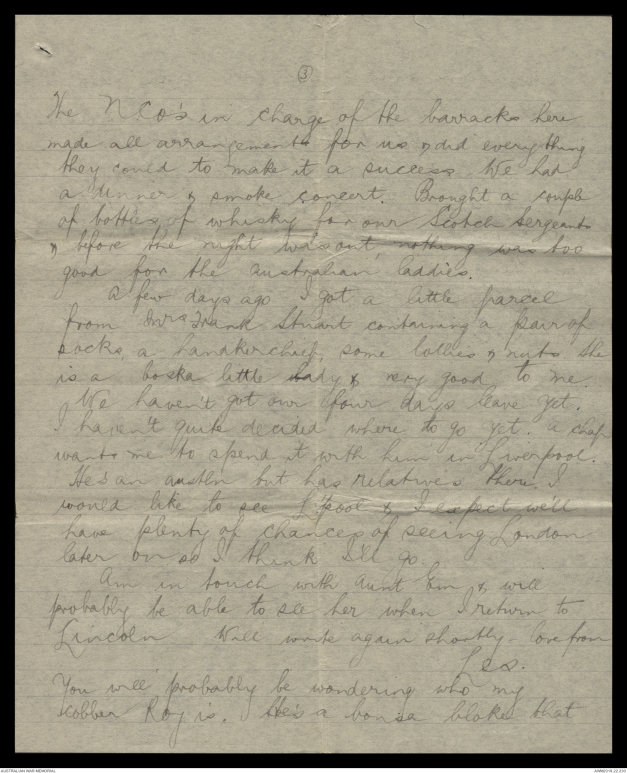 ③
The NCO's in charge of the barracks here
made all arrangements for us & did everything
they could to make it a success. We had
a dinner & smoke concert. Brought a couple
of bottles of whisky for our Scotch Sergeants
& before the night was out, nothing was too
good for the australian laddies.
A few days ago I got a little parcel
from Mrs Frank Stuart containing a pair of
socks, a handkerchief, some lollies & nuts She
is a boska little lady & very good to me.
We haven't got our four days leave yet.
I haven't quite decided where to go yet. A chap
wants me to spend it with him in Liverpool.
He's an austln but has relatives there. I
would like to see L'pool & I expect we'll
have plenty of chances of seeing London
later on so I think I'll go.
Am in touch with Aunt Em & will
probably be able to see her when I return to
Lincoln Will write again shortly - love from
Les.
You will probably be wondering who my
cobber Roy is. He's a bonsa bloke that
AUSTRALIAN WAR MEMORIAL